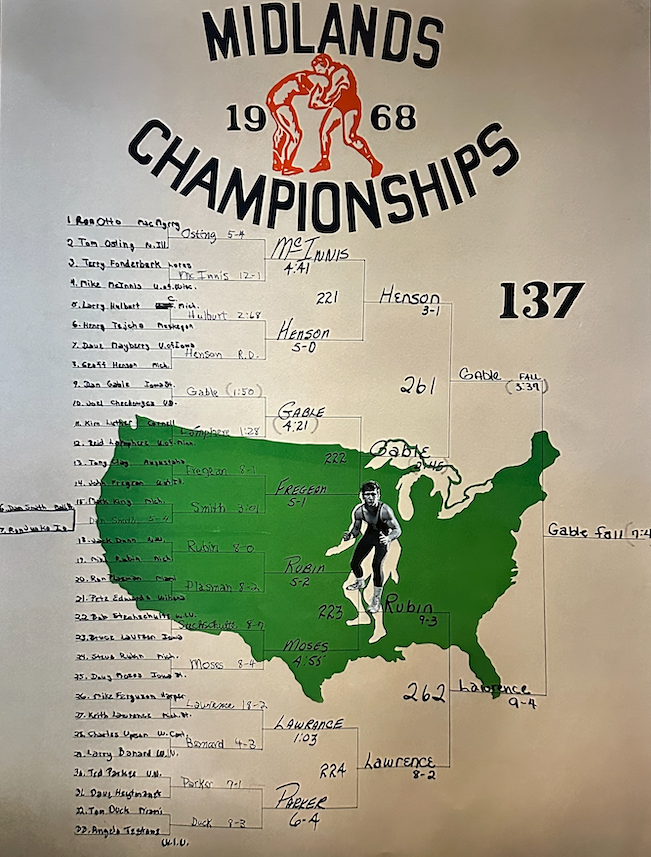 MIDLANDS
1968
CHAMPIONSHIPS
137
1 Ron Otto MacMurry
2 Tom Osting N.Ill
3. Terry Fonderbark Loras
4. Mike McInnis U.of.Wisc.
5. Larry Hulbert C. Mich.
6. Henry Tejcha Muskegon
7. Dave Mayberry U.of Iowa
8. Geoff Henson Mich.
9. Dan Gable Iowa St.
10. Joel
11. Kim Luther Cornell
12. Reid Lamphere U.of.Minn.
13. Tony Clay Augustana
14. John Fregeau
15. Mark King Mich.
16. Dan Smith
17.
Dan Smith 5-4
18. Jack Dunn
19. Mike Rubin Mich
20. Ron Plasman Miami
21. Pete Edwards
22. Bob W.I.U.
23. Bruce Laursen Iowa
24. Steve Rubin Mich.
25. Doug Moses Iowa St.
26. Mike Ferguson Harper
27. Keith Lawrence Mich. St.
28. Charles W. Cent
29. Larry Banard W.U.
30. Ted Parker U.N.
31. Dave
32. Tom Duck Miami
33. Angelo Testone
W.I.U.
Osting 5-4
McInnis 12-1
Hulburt 2:68
Henson R.D.
Gable (1:50)
Lamphere 1:28
Fregeau 8-1
Smith 3:01
Rubin 8-0
Plasman 8-2
Moses 8-4
Lawrence 18-2
Bernard 4-3
Parker 7-1
Duck 8-3
McINNIS
4:41
HENSON
5-0
GABLE
(4:21)
FREGEAU
5-1
RUBIN
5-2
MOSES
4:55
LAWRANCE
1:03
PARKER
6-4
221
222
223
224
Henson
3-1
Gable
Rubin
9-3
Lawrence
8-2
261
262
GABLE FALL
(3:39)
Lawrence
9-4
Gable fall (7:4